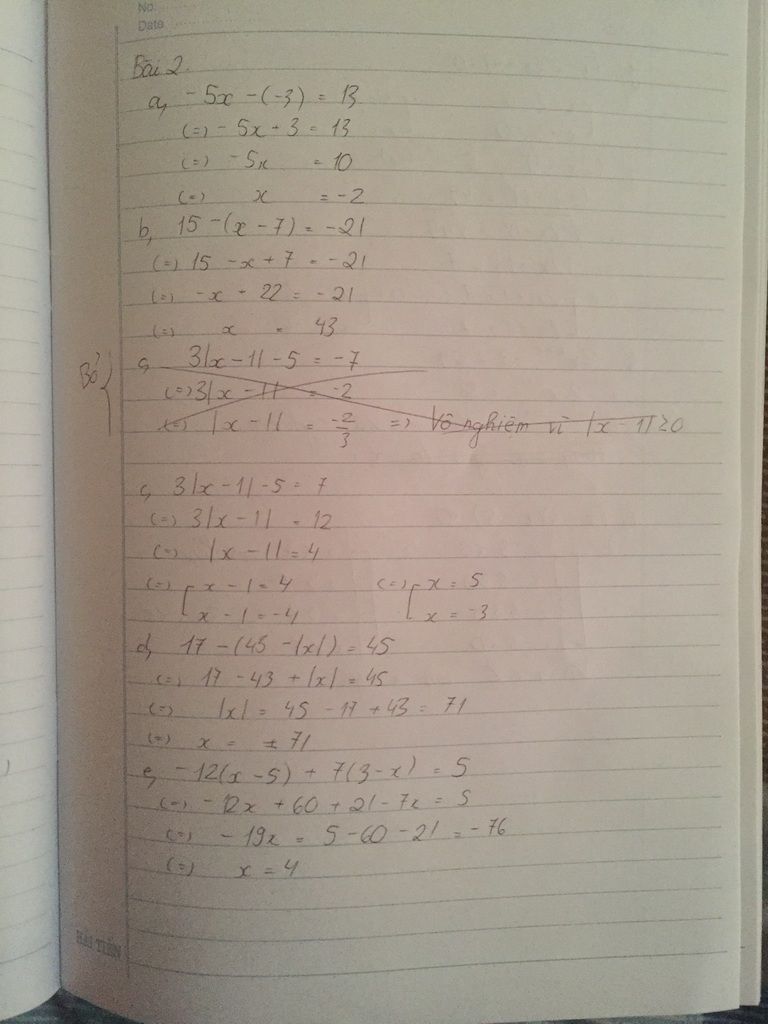 No.
Date
Bài 2.
a, -5x - (-3) = 13
(=) -5x + 3 = 13
(=) -5x = 10
(=) x = -2
b, 15 - (x - 7) = -21
(=) 15 - x + 7 = -21
(=) -x + 22 = -21
(=) x = 43
Bỏ { c, 3|x - 1| - 5 = -7
(=) 3|x - 1| = -2
(=) |x - 1| = -2/3 => Vô nghiệm vì |x - 1| ≥ 0
c, 3|x - 1| - 5 = 7
(=) 3|x - 1| = 12
(=) |x - 1| = 4
(=) [ x - 1 = 4 (=) [ x = 5
x - 1 = -4 x = -3
d, 17 - (43 - |x|) = 45
(=) 17 - 43 + |x| = 45
(=) |x| = 45 - 17 + 43 = 71
(=) x = ± 71
e, -12(x - 5) + 7(3 - x) = 5
(=) -12x + 60 + 21 - 7x = 5
(=) -19x = 5 - 60 - 21 = -76
(=) x = 4
HẢI TIẾN